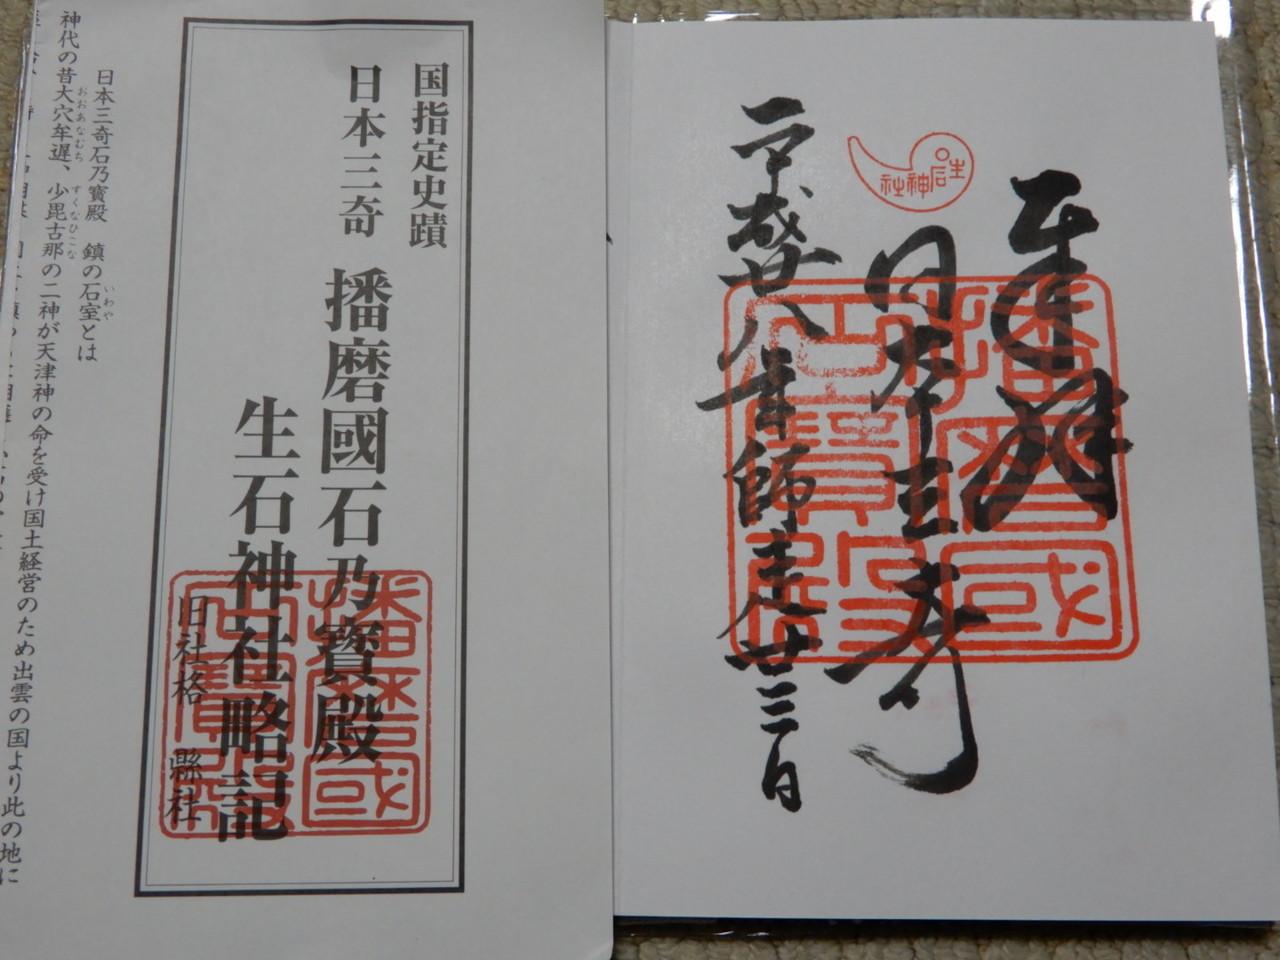 奉拝
日本三奇
平成廿八年師走廿三日
生石神社
播磨國石乃寶殿
国指定史蹟
日本三奇 播磨國石乃寶殿
生石神社略記
旧社格 縣社
播磨國石乃寶殿
日本三奇石乃寶殿 鎮の石室とは
いわや
神代の昔大穴牟遅、少毘古那の二神が天津神の命を受け国土経営のため出雲の国より此の地に
おおあなむち すくなひこな